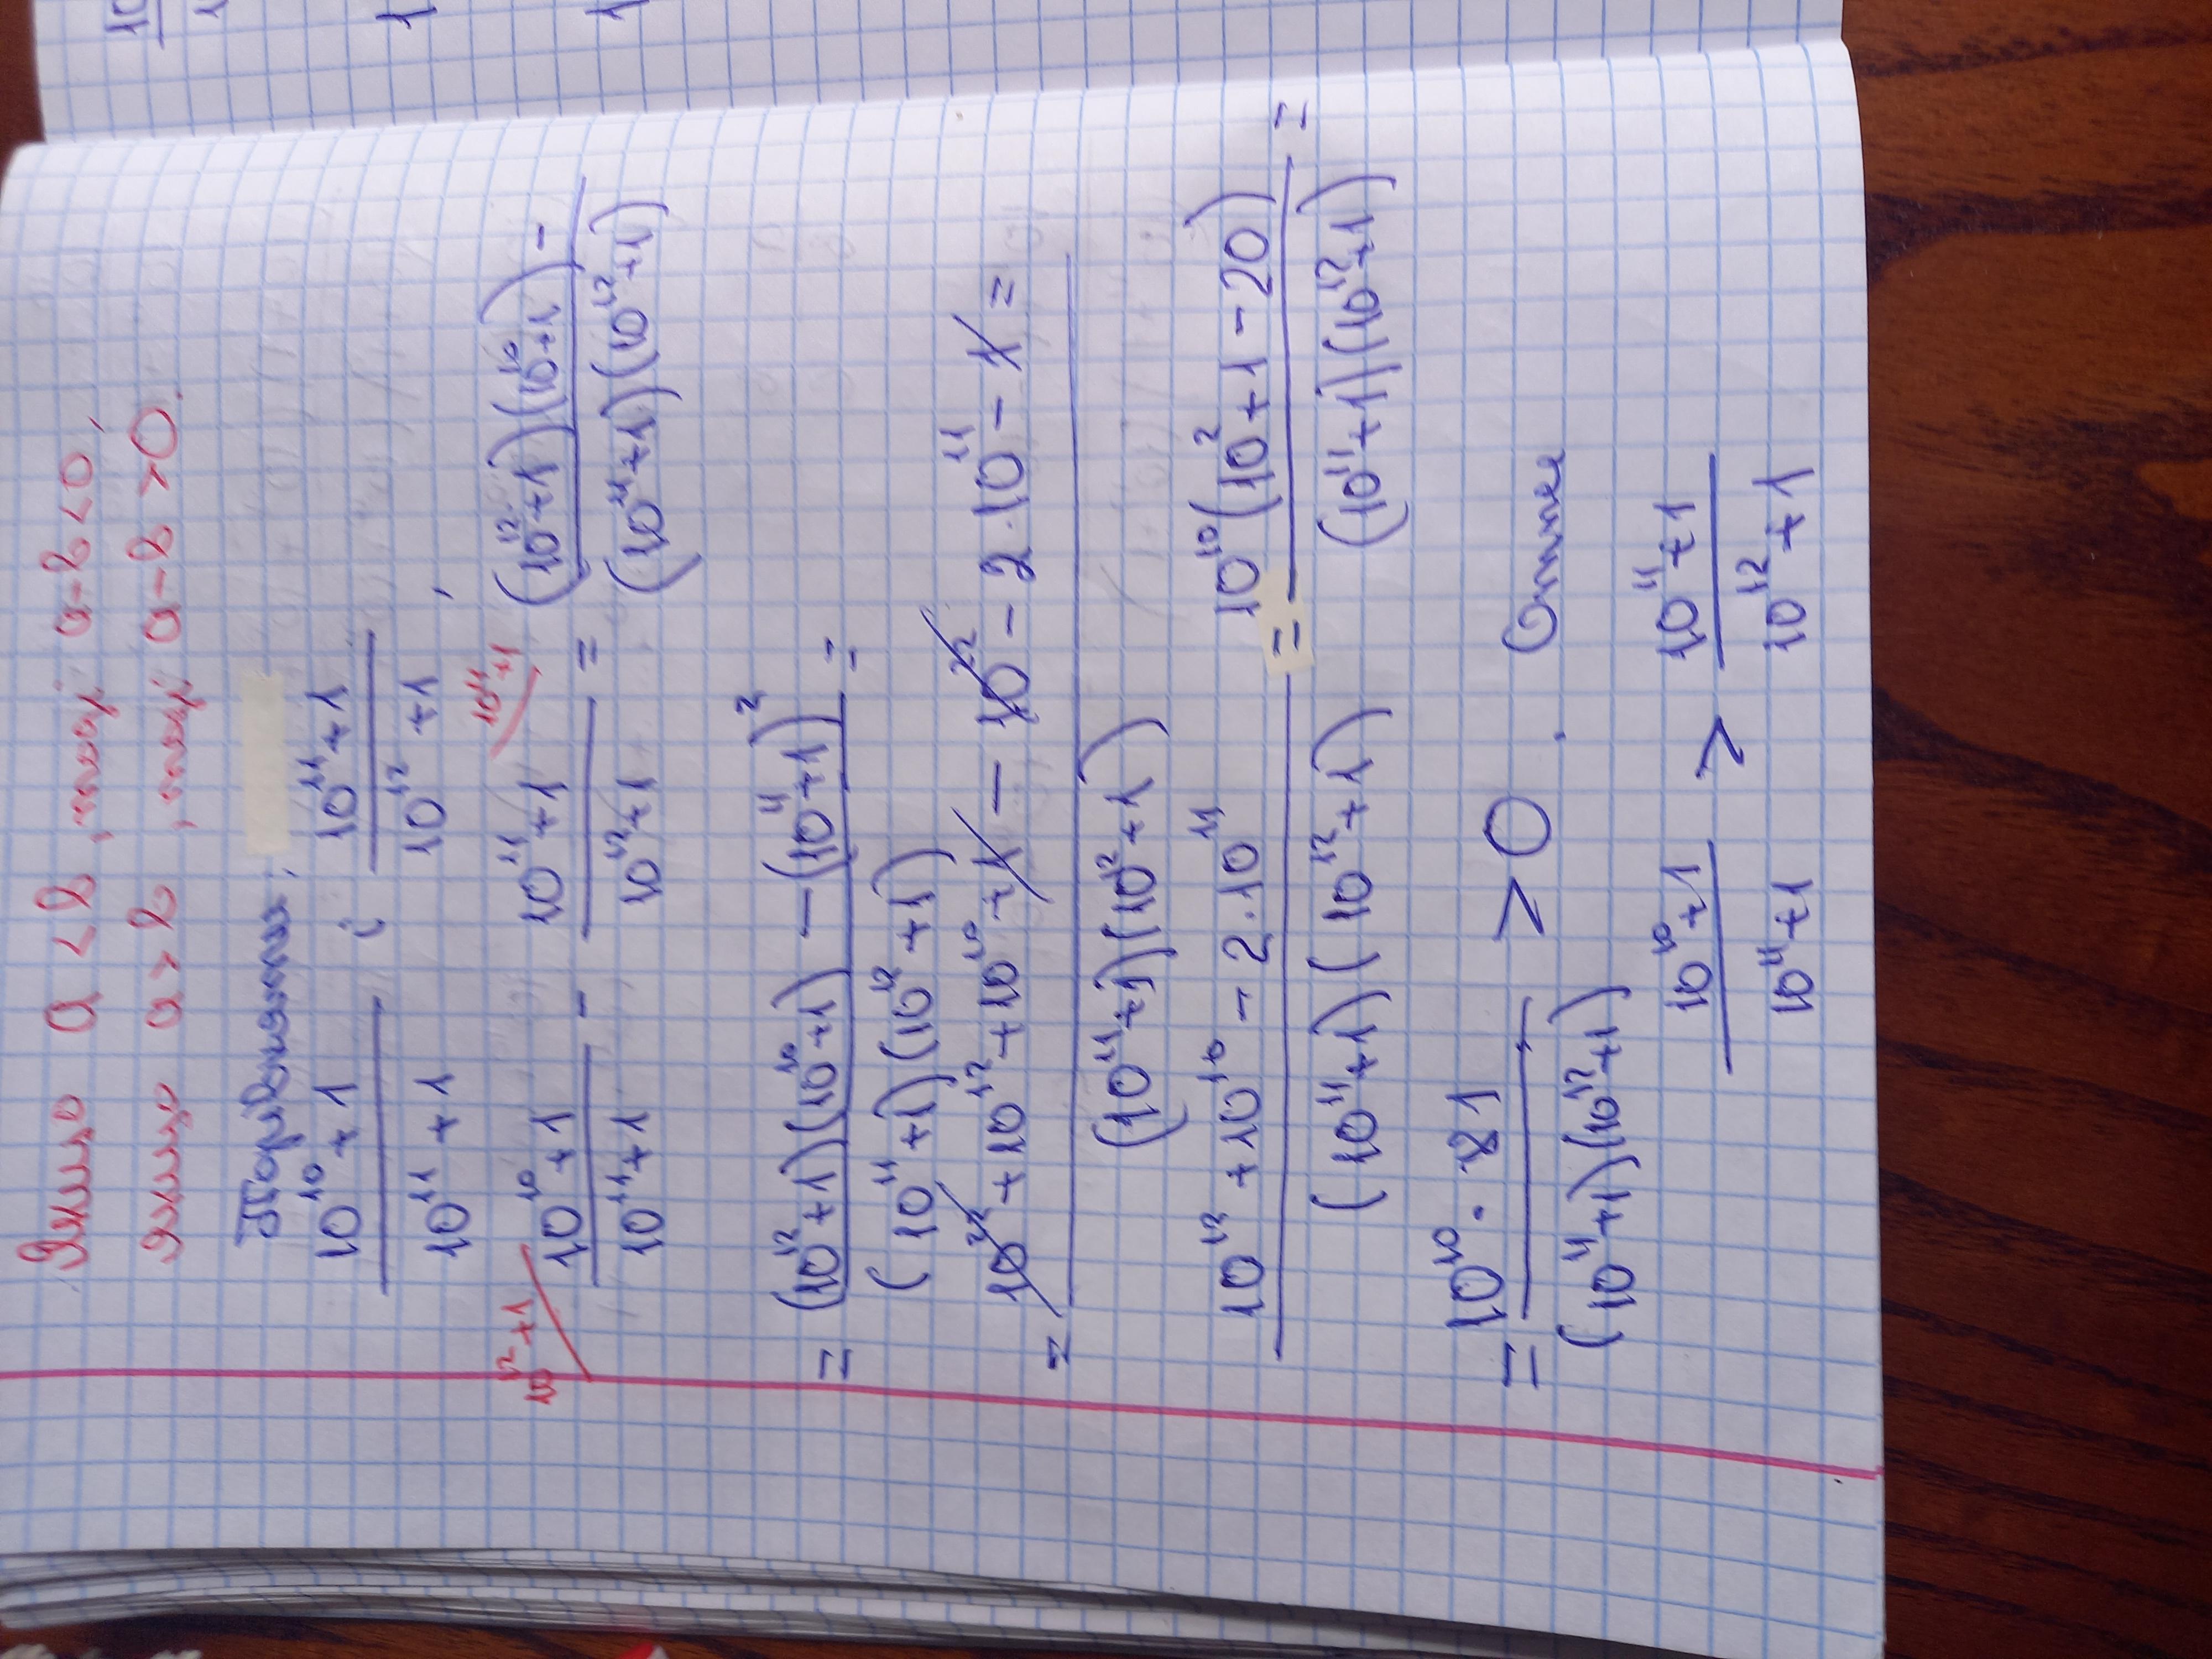 Якщо a < b, тоді a-b<0,
якщо a > b, тоді a-b >0.
Порівняти:
(10¹⁰+1)/(10¹¹+1) і (10¹¹+1)/(10¹²+1),
10¹²+1 10¹¹+1
(10¹⁰+1)/(10¹¹+1) - (10¹¹+1)/(10¹²+1) = (10¹²+1)(10¹⁰+1) - / (10¹¹+1)(10¹²+1)
= ((10¹²+1)(10¹⁰+1) - (10¹¹+1)²)/((10¹¹+1)(10¹²+1)) =
= (10²²+10¹²+10¹⁰+1 - 10²² - 2·10¹¹ - 1)/((10¹¹+1)(10¹²+1)) =
(10¹²+10¹⁰-2·10¹¹)/((10¹¹+1)(10¹²+1)) = (10¹⁰(10²+1-20))/((10¹¹+1)(10¹²+1)) =
= (10¹⁰·81)/((10¹¹+1)(10¹²+1)) > 0. Отже
(10¹⁰+1)/(10¹¹+1) > (10¹¹+1)/(10¹²+1)